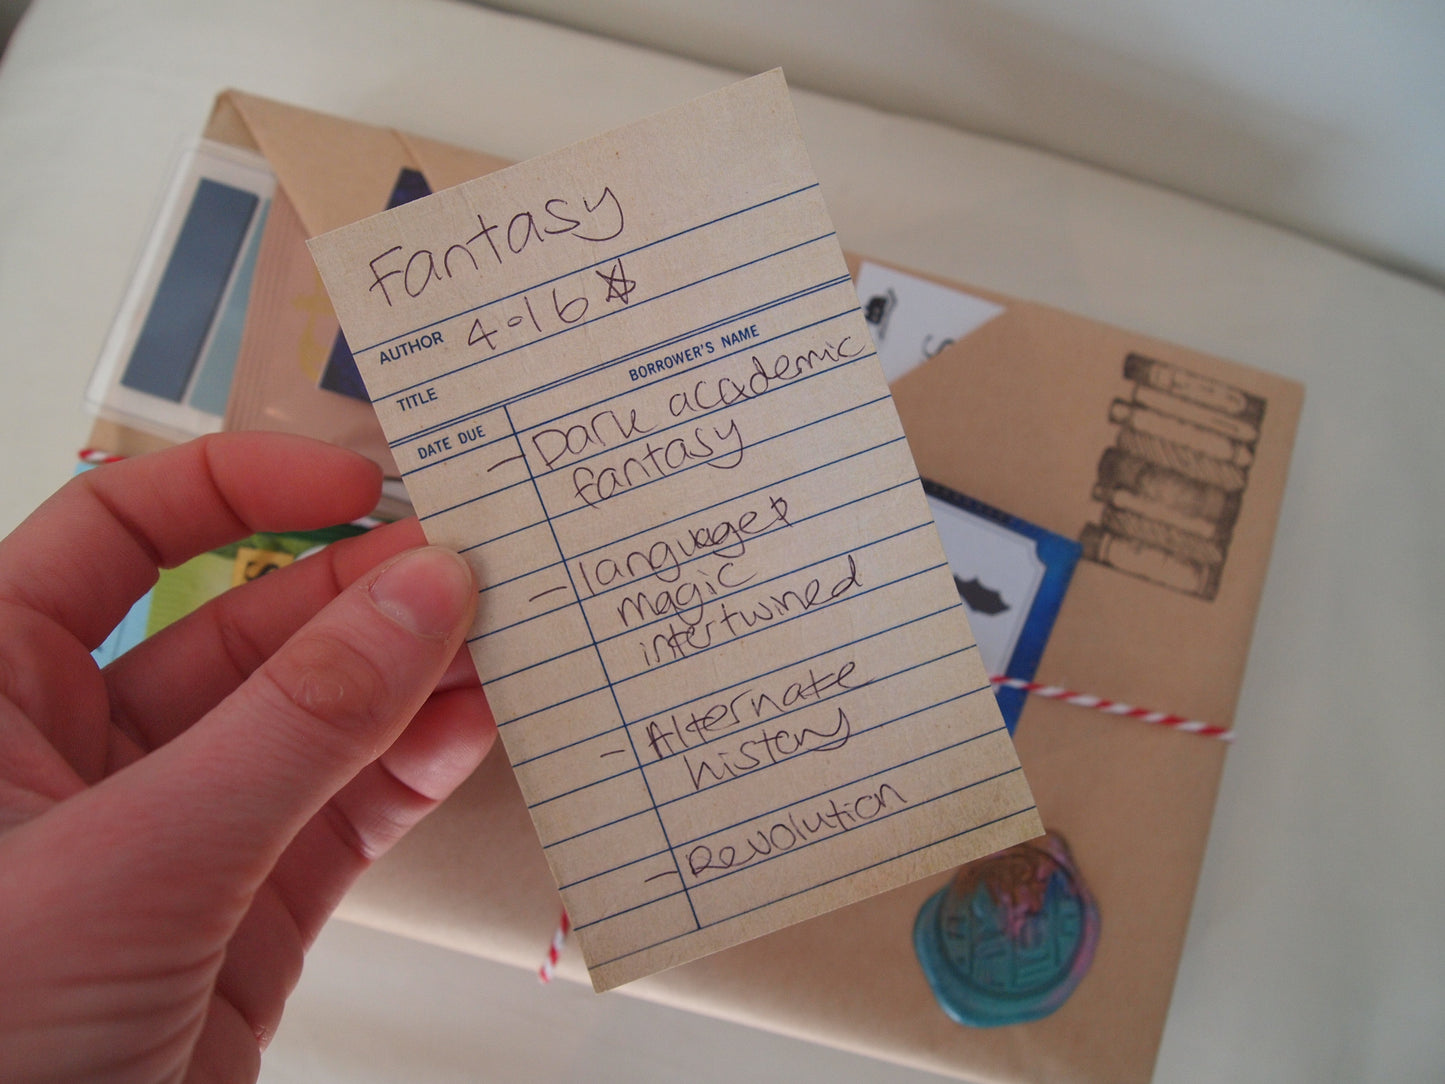 Fantasy
AUTHOR 4.16 ☆
TITLE
DATE DUE
BORROWER'S NAME
- Dark academic
fantasy
- language &
magic
intertwined
- Alternate
history
- Revolution
S
S